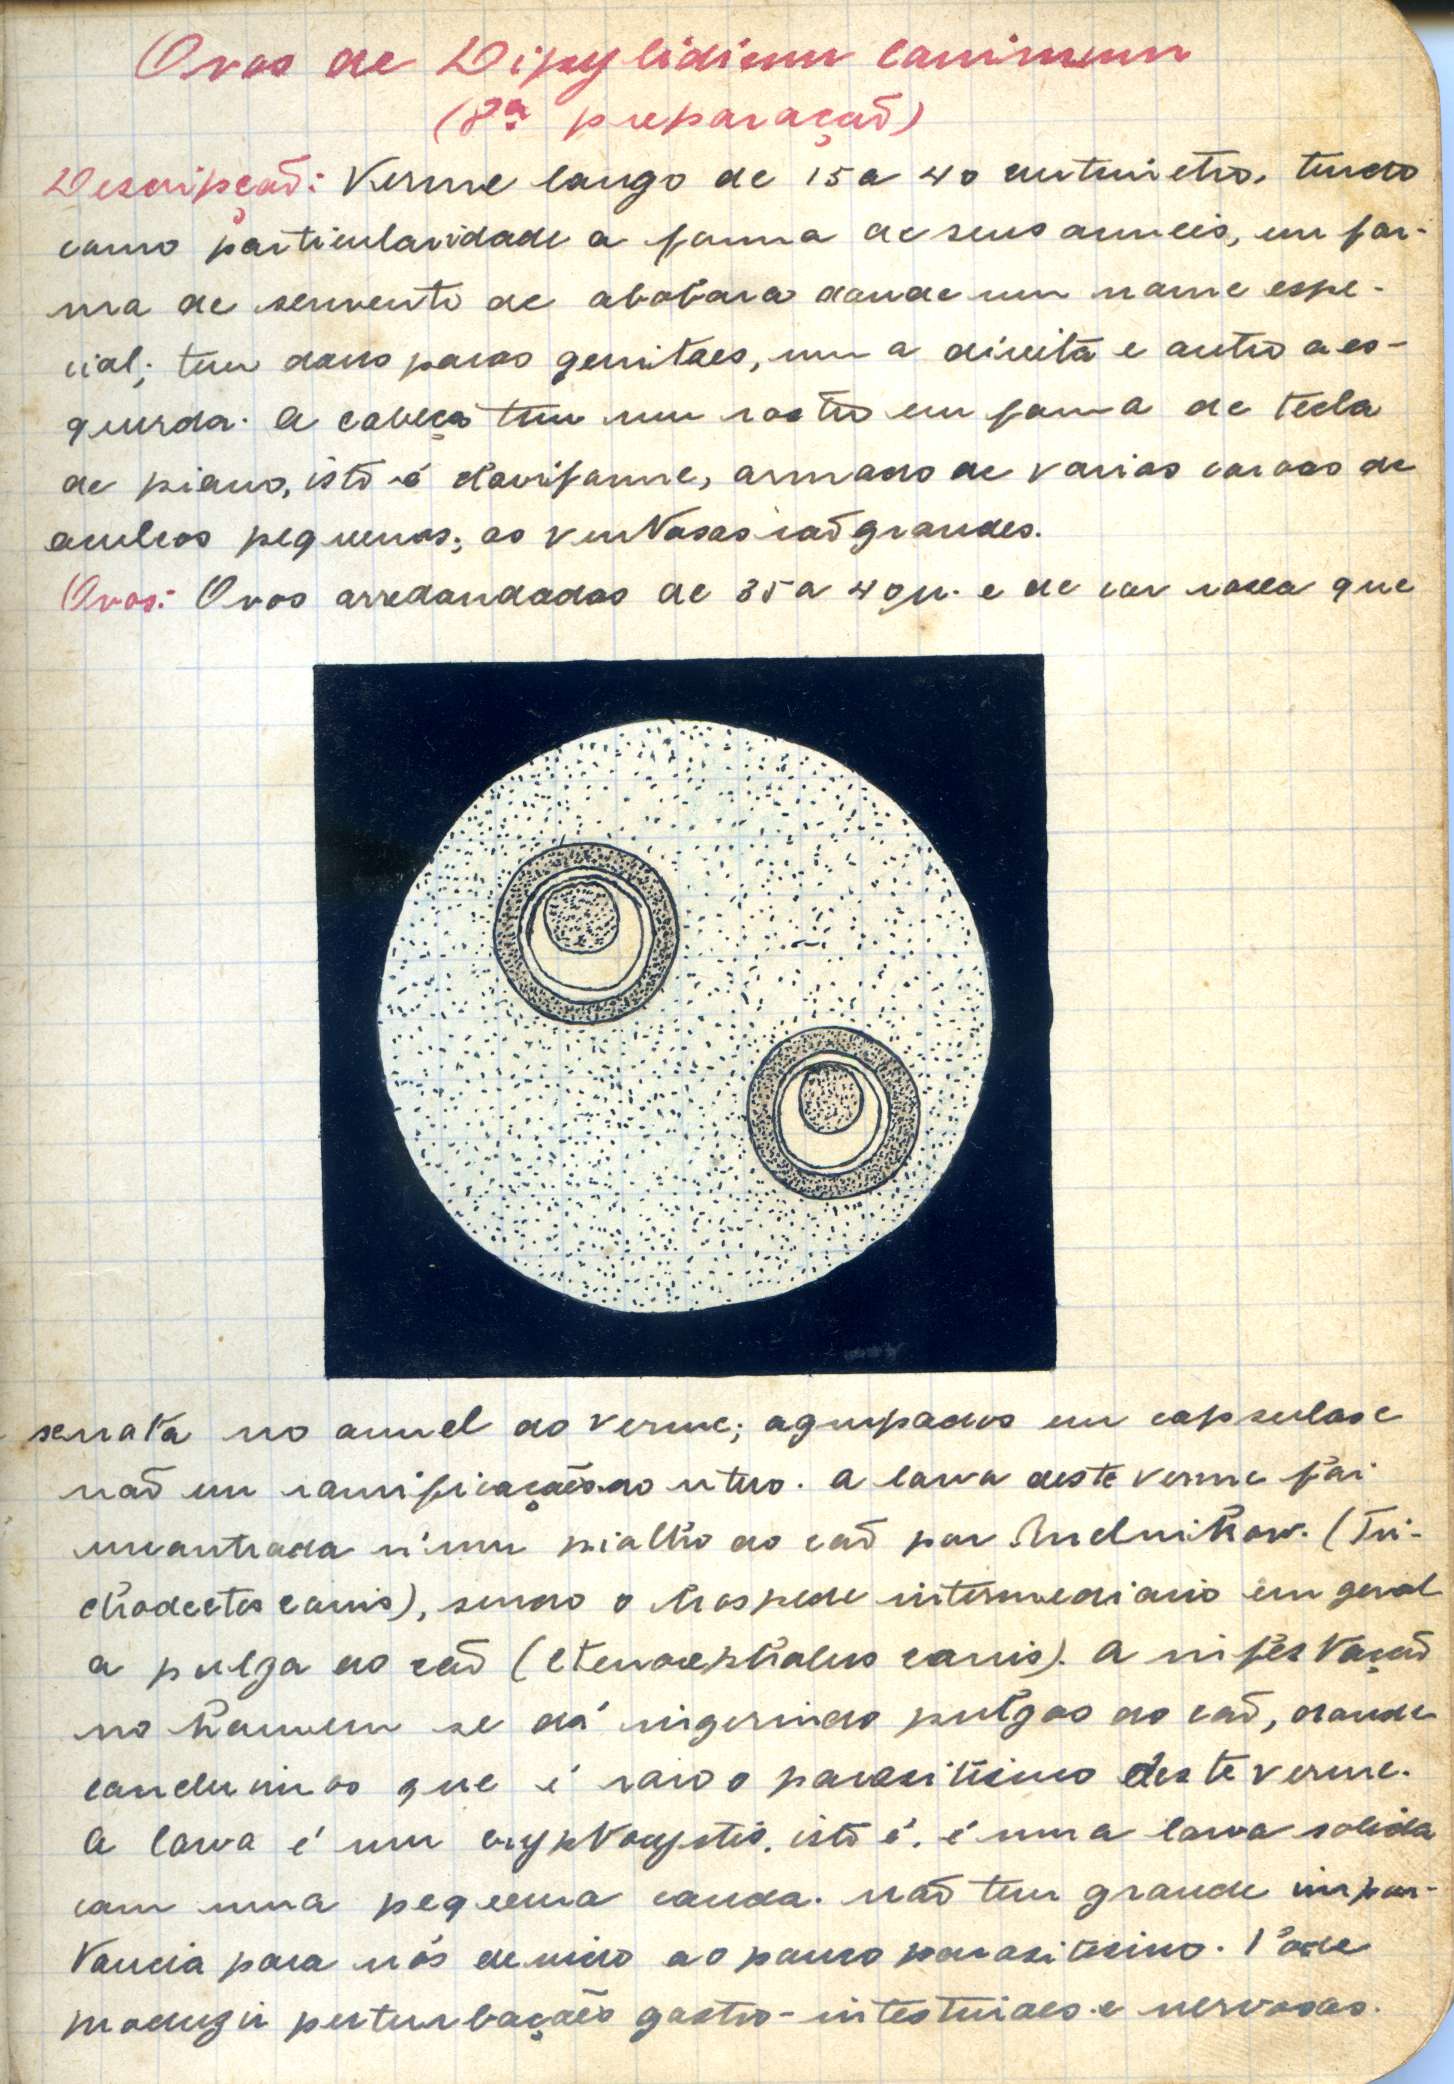 Ovos de Dipylidium caninum
(8ª preparação)
Descripção: Verme longo de 15 a 40 centimetro, tendo
como particularidade a forma de seus anneis, em for-
ma de semente de abobora donde um nome espe-
cial; tem dous poros genitaes, um a direita e outro a es-
querda. A cabeça tem um rostro em forma de tecla
de piano, isto é claviforme, armado de varias coroas de
aculeos pequenos; as ventosas são grandes.
Ovos: Ovos arredondados de 35 a 40 µ. e de cor rosea que
se nota no annel do verme; agrupados em capsulas e
não em ramificações do utero. A larva deste verme foi
encontrada n'um piolho do cão por Melnikow. (Tri-
chodectes canis), sendo o hospede intermediario em geral
a pulga do cão (Ctenocephalus canis). A infestação
no homem se dá ingerindo pulgas do cão, donde
concluimos que é raro o parasitismo deste verme.
A larva é um cryptocystis, isto é, é uma larva solida
com uma pequena cauda. Não tem grande impor-
tancia para nós devido ao pouco parasitismo. Póde
produzir perturbações gastro-intestinaes e nervosas.